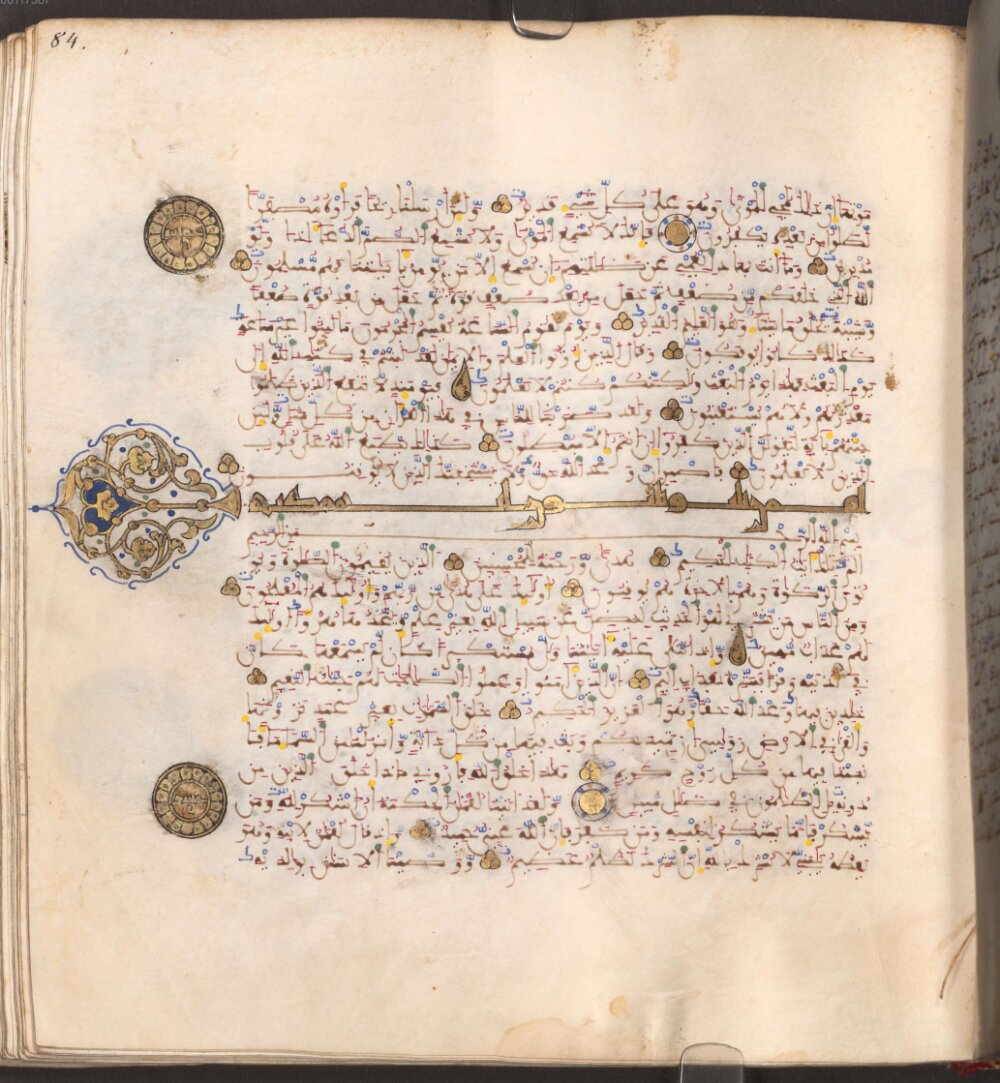 موتها إن ذلك لمحي الموتى وهو على كل شيء قدير ولئن أرسلنا ريحا فرأوه مصفرا
لظلوا من بعده يكفرون فإنك لا تسمع الموتى ولا تسمع الصم الدعاء إذا ولوا
مدبرين وما أنت بهاد العمي عن ضللتهم إن تسمع إلا من يؤمن بايتنا فهم مسلمون
الله الذي خلقكم من ضعف ثم جعل من بعد ضعف قوة ثم جعل من بعد قوة ضعفا
وشيبة يخلق ما يشاء وهو العليم القدير ويوم تقوم الساعة يقسم المجرمون ما لبثوا غير ساعة
كذلك كانوا يؤفكون وقال الذين أوتوا العلم والإيمن لقد لبثتم في كتب الله إلى
يوم البعث فهذا يوم البعث ولكنكم كنتم لا تعلمون فيومئذ لا تنفع الذين ظلموا
معذرتهم ولا هم يستعتبون ولقد ضربنا للناس في هذا القرآن من كل مثل ولئن
جئتهم بآية ليقولن الذين كفروا إن أنتم إلا مبطلون كذلك يطبع الله على قلوب
الذين لا يعلمون فاصبر إن وعد الله حق ولا يستخفنك الذين لا يوقنون
مكية
بسم الله الرحمن الرحيم
الم تلك ايت الكتب الحكيم هدى ورحمة للمحسنين الذين يقيمون الصلوة ويو
تون الزكوة وهم بالاخرة هم يوقنون أولئك على هدى من ربهم وأولئك هم المفلحون
ومن الناس من يشتري لهو الحديث ليضل عن سبيل الله بغير علم ويتخذها هزؤا أولئك
لهم عذاب مهين وإذا تتلى عليه ايتنا ولى مستكبرا كأن لم يسمعها كأن
في أذنيه وقرا فبشره بعذاب أليم إن الذين امنوا وعملوا الصلحت لهم جنت النعيم
خلدين فيها وعد الله حقا وهو العزيز الحكيم خلق السموت بغير عمد ترونها
وألقى في الأرض روسي أن تميد بكم وبث فيها من كل دابة وأنزلنا من السماء ماء فأ
نبتنا فيها من كل زوج كريم هذا خلق الله فأروني ماذا خلق الذين من
دونه بل الظلمون في ضلل مبين ولقد اتينا لقمن الحكمة أن اشكر لله ومن
يشكر فإنما يشكر لنفسه ومن كفر فإن الله غني حميد وإذ قال لقمن لابنه وهو
يعظه يبني لا تشرك بالله إن الشرك لظلم عظيم ووصينا الإنسن بولديه
84.